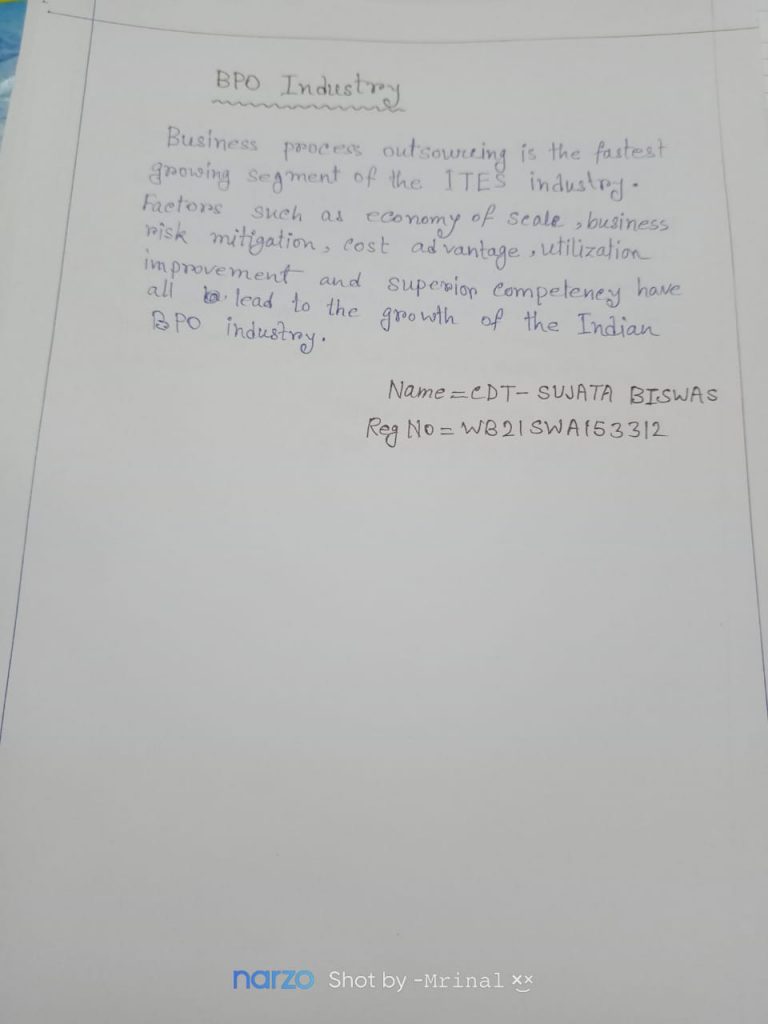 BPO Industry
Business process outsourcing is the fastest
growing segment of the ITES industry.
Factors such as economy of scale, business
risk mitigation, cost advantage, utilization
improvement and superior competency have
all lead to the growth of the Indian
BPO industry.
Name = CDT- SUJATA BISWAS
Reg No = WB21SWA153312
narzo Shot by -Mrinal